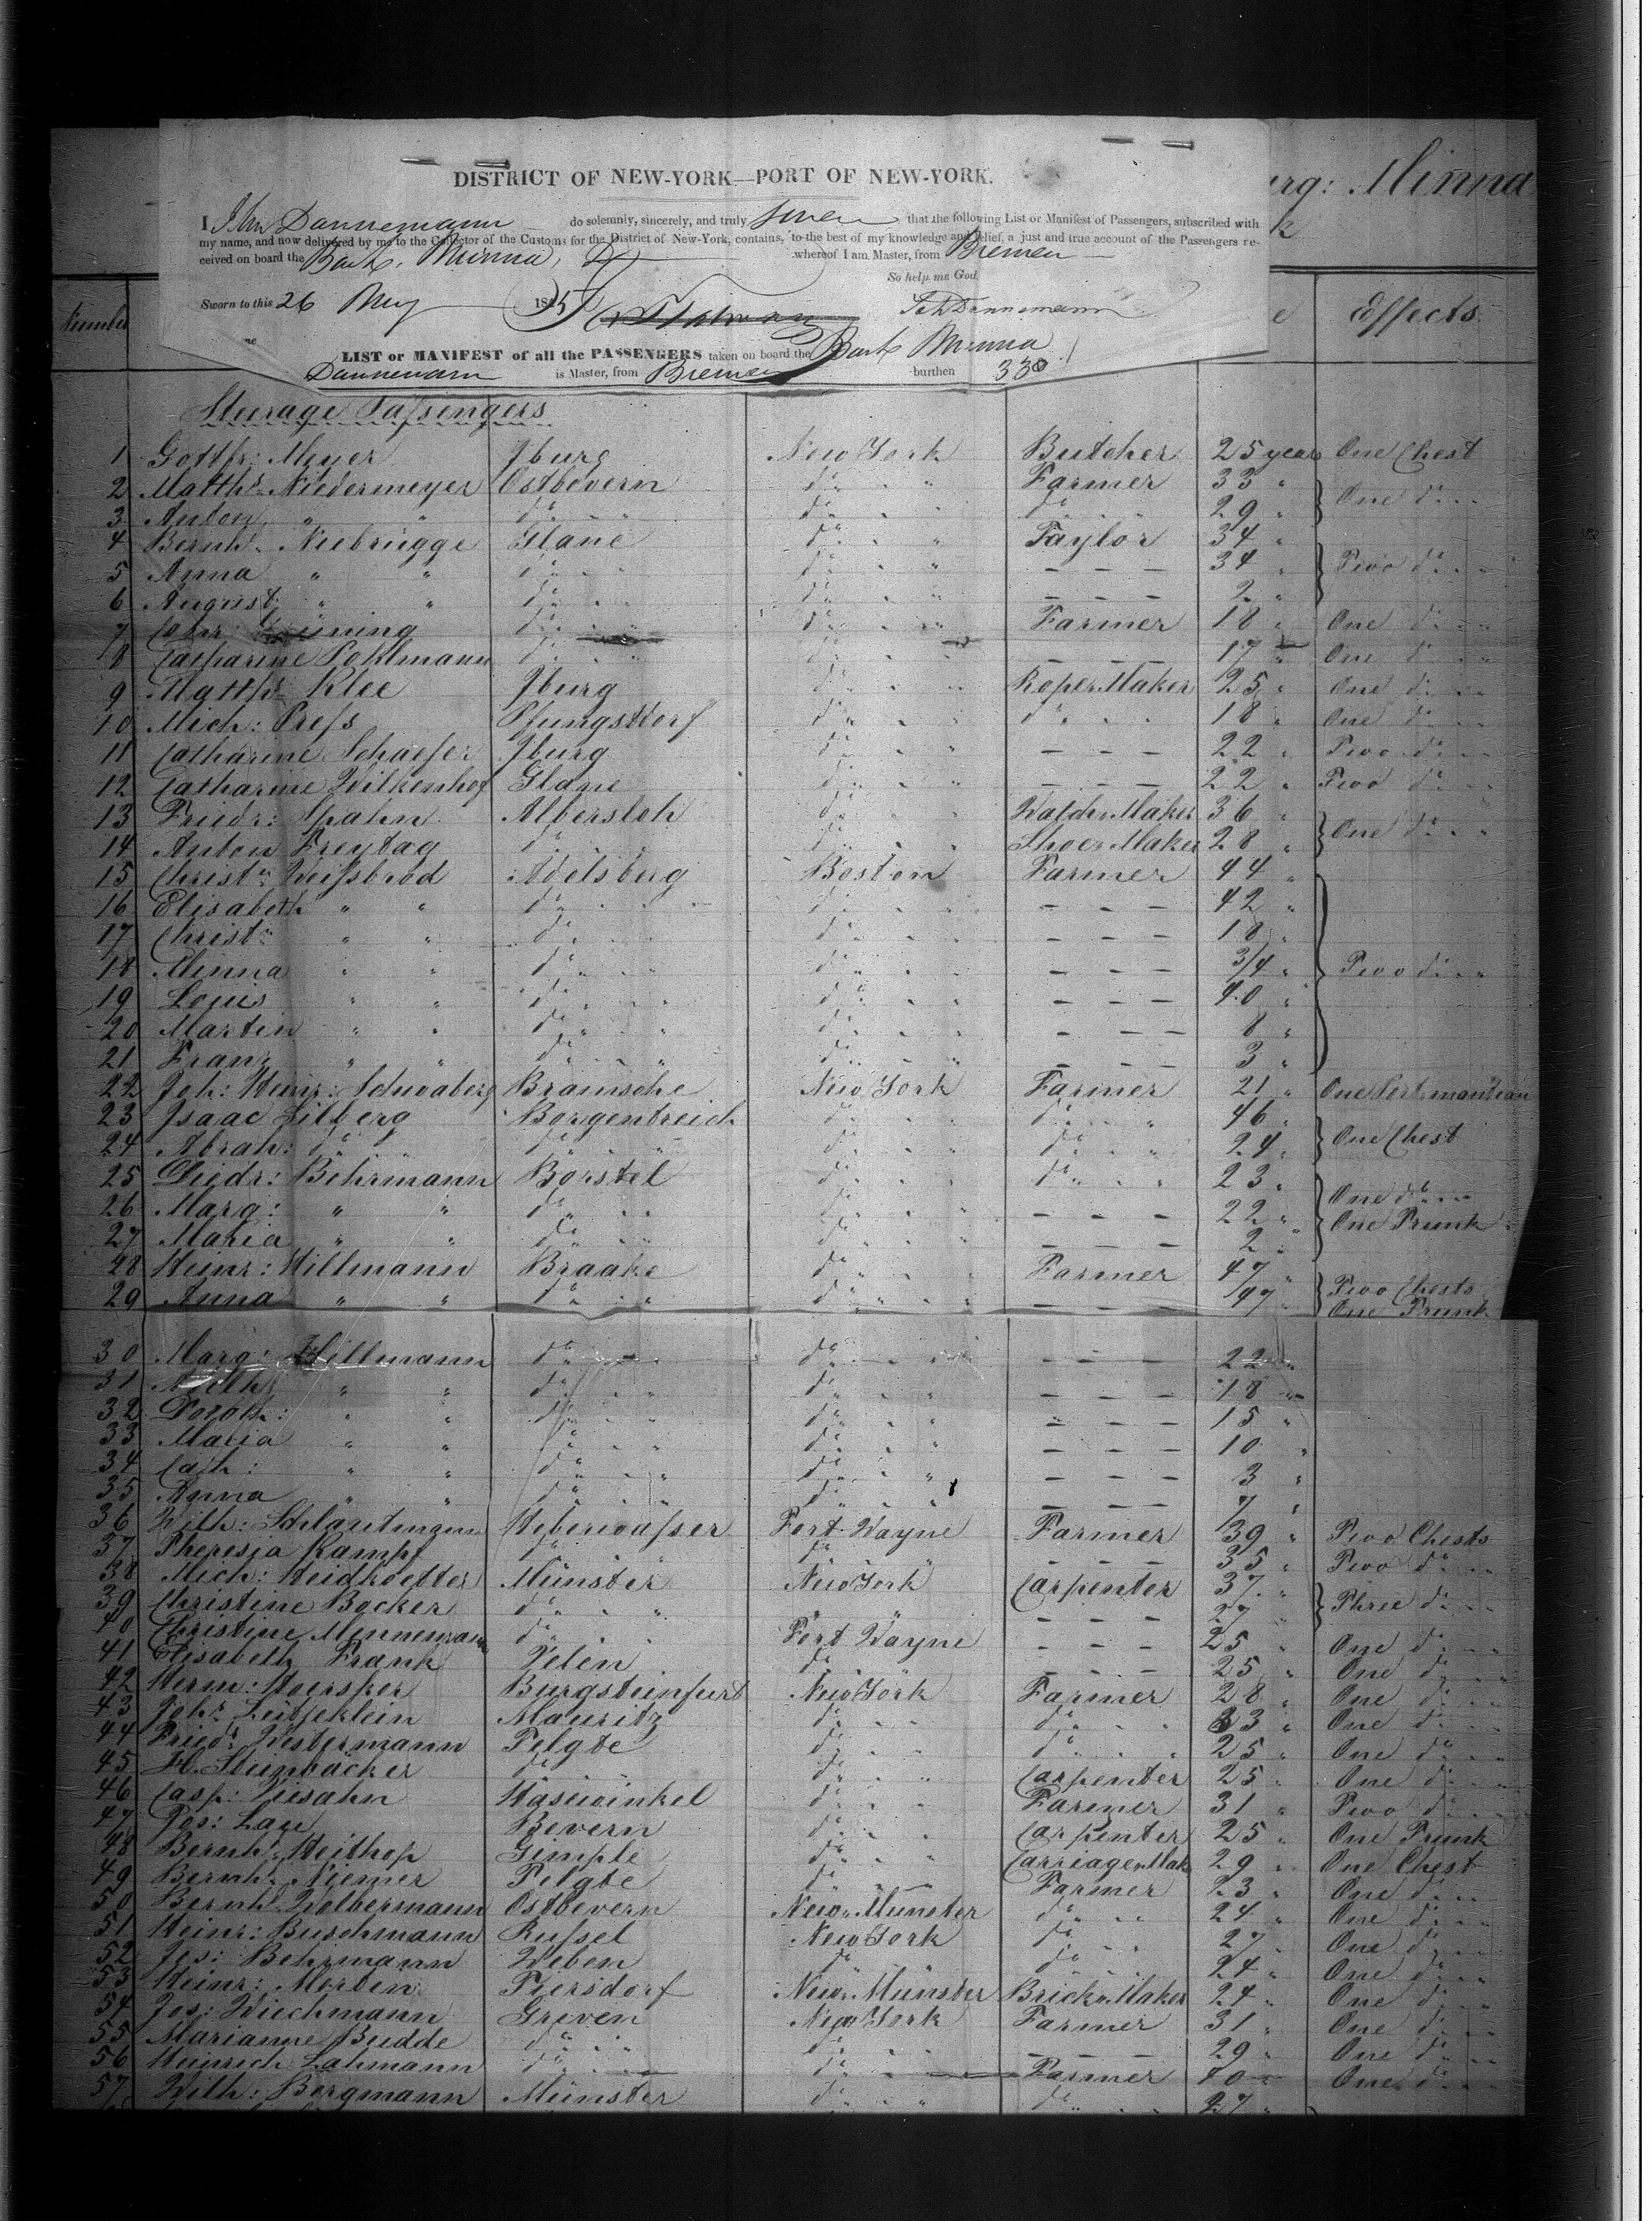 urg: Minna
k
DISTRICT OF NEW-YORK—PORT OF NEW-YORK.
I, Dannemann do solemnly, sincerely, and truly swear that the following List or Manifest of Passengers, subscribed with
my name, and now delivered by me to the Collector of the Customs for the District of New-York, contains, to the best of my knowledge and belief, a just and true account of the Passengers re-
ceived on board the Bark, Minna, whereof I am Master, from Bremen
So help me God.
Sworn to this 26 May 18 Dannemann
LIST or MANIFEST of all the PASSENGERS taken on board the Bark Minna
Dannemann is Master, from Bremen burthen 330
Number e Effects.
Steerage Passengers
1 Gotth: Meyer Jburg New York Butcher 25 years One Chest
2 Matths Niedermeyer Ostbevern do " " Farmer 33 "
3 Anton " " do " " do " " do " " 29 " One do " "
4 Bernhd Niebrügge Glane do " " Taylor 34 "
5 Anna " " do " " do " " — — — 34 " Two do " "
6 August " " do " " do " " — — — 2 "
7 do " " do " " Farmer 18 " One do " "
8 Catharine Pohlmann do " " do " " — — — 17 " One do " "
9 Matths Klee Jburg do " " Roper Maker 25 " One do " "
10 Mich: Press Pfungstdorf do " " do " " 18 " One do " "
11 Catharine Schaefer Jburg do " " — — — 22 " Two do " "
12 Catharine Wilkenhof Glane do " " — — — 22 " Two do " "
13 Friedr: Spahn Albersloh do " " Watch Maker 36 "
14 Anton Freytag do " " do " " Shoe Maker 28 " One do " "
15 Christn Weissbrod Adelsberg Boston Farmer 44 "
16 Elisabeth " " do " " do " " — — — 42 "
17 Christn " " do " " do " " — — — 18 "
18 Minna " " do " " do " " — — — 3/4 " Two do " "
19 Louis " " do " " do " " — — — 40 "
20 Martin " " do " " do " " — — — 8 "
21 Franz " " do " " do " " — — — 3 "
22 Joh: Heinr: Schwaberg Bramsche New York Farmer 21 " One Portmanteau
23 Isaac Silberg Borgentreich do " " do " " 46 "
24 Abrah: do do " " do " " do " " 24 " One Chest
25 Diedr: Behrmann Borstel do " " do " " 23 "
26 Marg: " " do " " do " " — — — 22 " One do " "
27 Maria " " do " " do " " — — — 2 " One Trunk
28 Heinr: Hillmann Braake do " " Farmer 47 " Two Chests
29 Anna " " do " " do " " — — — 47 " One Trunk
30 Marg: Hillmann do " " do " " — — — 22 "
31 " " do " " do " " — — — 18 "
32 Doroth: " " do " " do " " — — — 15 "
33 Maria " " do " " do " " — — — 10 "
34 Cath: " " do " " do " " — — — 3 "
35 Anna " " do " " do " " — — — 7 "
36 Wilh: Fort Wayne Farmer 39 " Two Chests
37 Theresia Kampf do do — — — 35 " Two do " "
38 Mich: Heidkoetter Münster New York Carpenter 37 "
39 Christine Bocker do " " — — — 27 " Three do " "
40 Christine Minnemann do " " Fort Wayne — — — 25 " One do " "
41 Elisabeth Frank Velen do — — — 25 " One do " "
42 Herm: Hoersker Burgsteinfurt New York Farmer 28 " One do " "
43 Mauritz do " " do " " 33 " One do " "
44 Friedr Westermann Telgte do " " do " " 25 " One do " "
45 H. Steinbäcker do do " " Carpenter 25 " One do " "
46 Casp: Viesahn Hasewinkel do " " Farmer 31 " Two do " "
47 Jos: Lage Bevern do " " Carpenter 25 " One Trunk
48 Bernhd Heithop Gimple do " " Carriage Mak 29 " One Chest
49 Bernhd Niemer Telgte do Farmer 23 " One do " "
50 Bernhd Wolbermann Ostbevern New Münster do " " 24 " One do " "
51 Heinr: Buschmann Russel New York do " " 27 " One do " "
52 Jos: Behrmann Weben do do " " 24 " One do " "
53 Heinr: Morben Tiersdorf New Münster Brick Maker 24 " One do " "
54 Jos: Wiechmann Greven New York Farmer 31 " One do " "
55 Marianne Budde do " " do " " — — — 29 " One do " "
56 Heinrich Lahmann do " " do " " Farmer 40 " One do " "
57 Wilh: Bergmann Münster do " " do " " 27 "